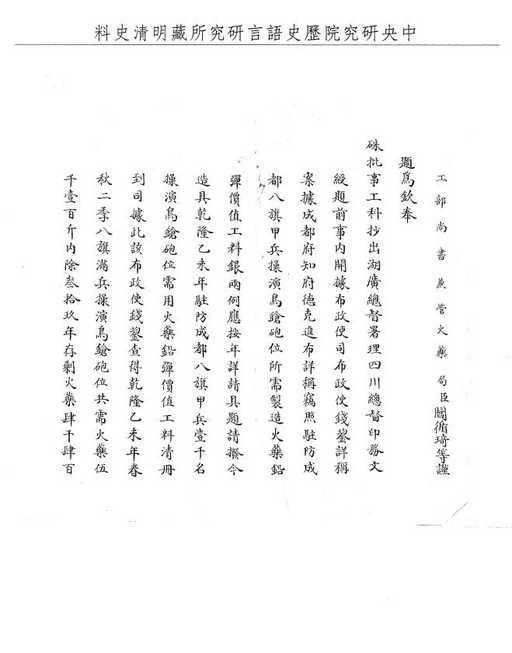 中央研究院歷史語言研究所藏明清史料
工部尚書兼管火藥局臣閻循琦等謹
題為欽奉
硃批事工科抄出湖廣總督署理四川總督印務文
綬題前事內開據布政使司布政使錢鋆詳稱
案據成都府知府德克進布詳稱竊照駐防成
都八旗甲兵操演鳥鎗砲位所需製造火藥鉛
彈價值工料銀兩例應按年詳請具題請撥今
造具乾隆乙未年駐防成都八旗甲兵壹千名
操演鳥鎗砲位需用火藥鉛彈價值工料清冊
到司據此該布政使錢鋆查得乾隆乙未年春
秋二季八旗滿兵操演鳥鎗砲位共需火藥伍
千壹百斤內除叁拾玖年存剩火藥肆千肆百